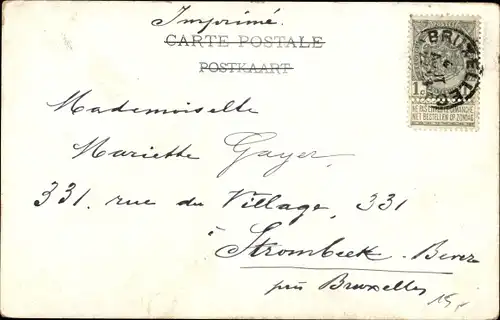 Imprimé.
CARTE POSTALE
POSTKAART
BRUXELLES
1c
NE PAS LIVRER LE DIMANCHE
NIET BESTELLEN OP ZONDAG
Mademoiselle
Mariette Gayer,
331. rue du Village, 331
à Strombeek-Bever
près Bruxelles
15,-